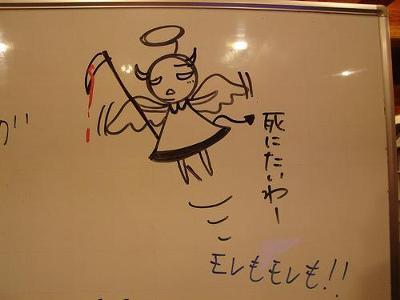 死にたいわー
モレもモレも!!